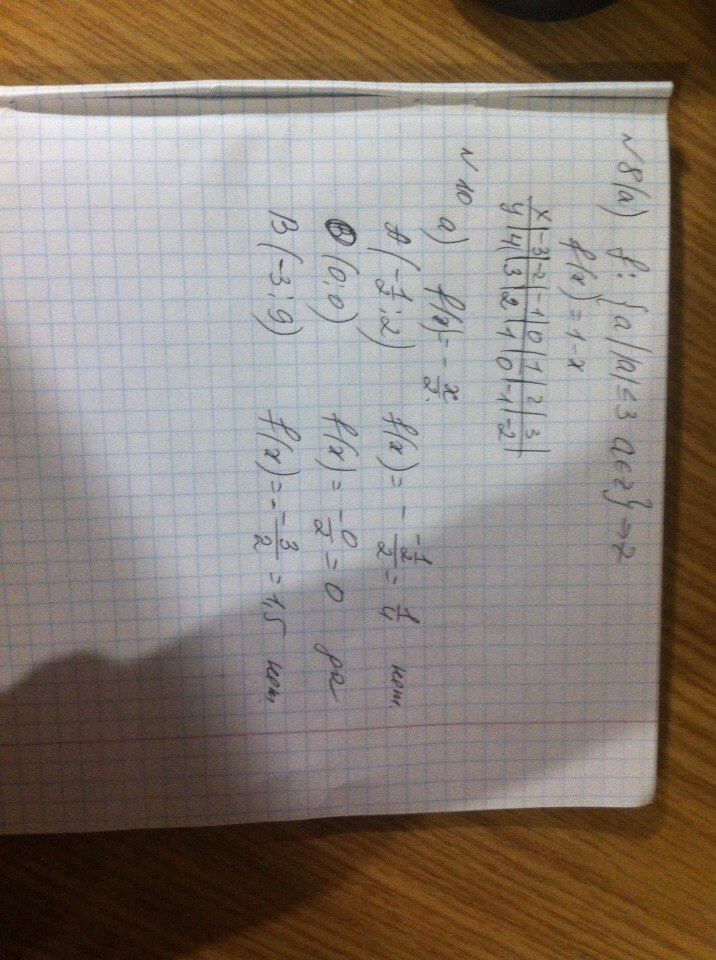 N8(a) f: {a | |a| ≤ 3 a ∈ z} → z
f(x) = 1-x
x | -3 | -2 | -1 | 0 | 1 | 2 | 3 |
y | 4 | 3 | 2 | 1 | 0 | -1 | -2 |
N10 a) f(x) = - x/2
A (-1/2; 2) f(x) = - (-1/2)/2 = 1/4 нет
О (0; 0) f(x) = -0/2 = 0 да
B (-3; 9) f(x) = - -3/2 = 1,5 нет